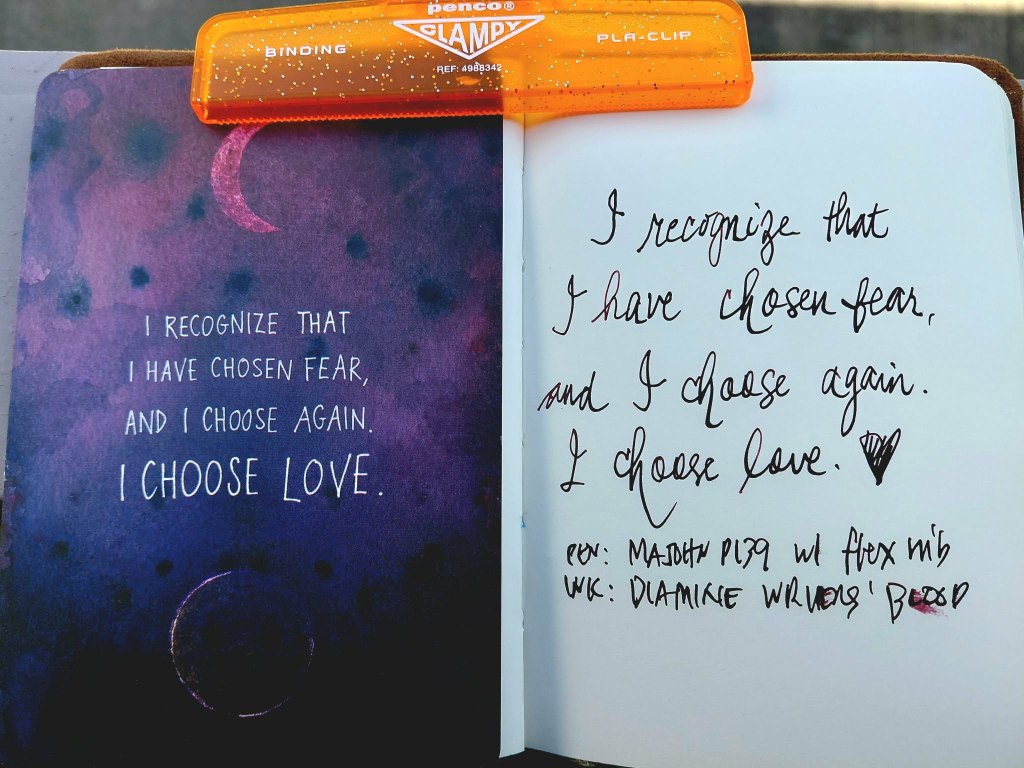 penco®
CLAMPY
BINDING
PLA-CLIP
REF: 4988342
I RECOGNIZE THAT
I HAVE CHOSEN FEAR,
AND I CHOOSE AGAIN.
I CHOOSE LOVE.
I recognize that
I have chosen fear,
and I choose again.
I choose love.
PEN: MAJOHN P139 w/ flex nib
INK: DIAMINE WRITERS' BLOOD